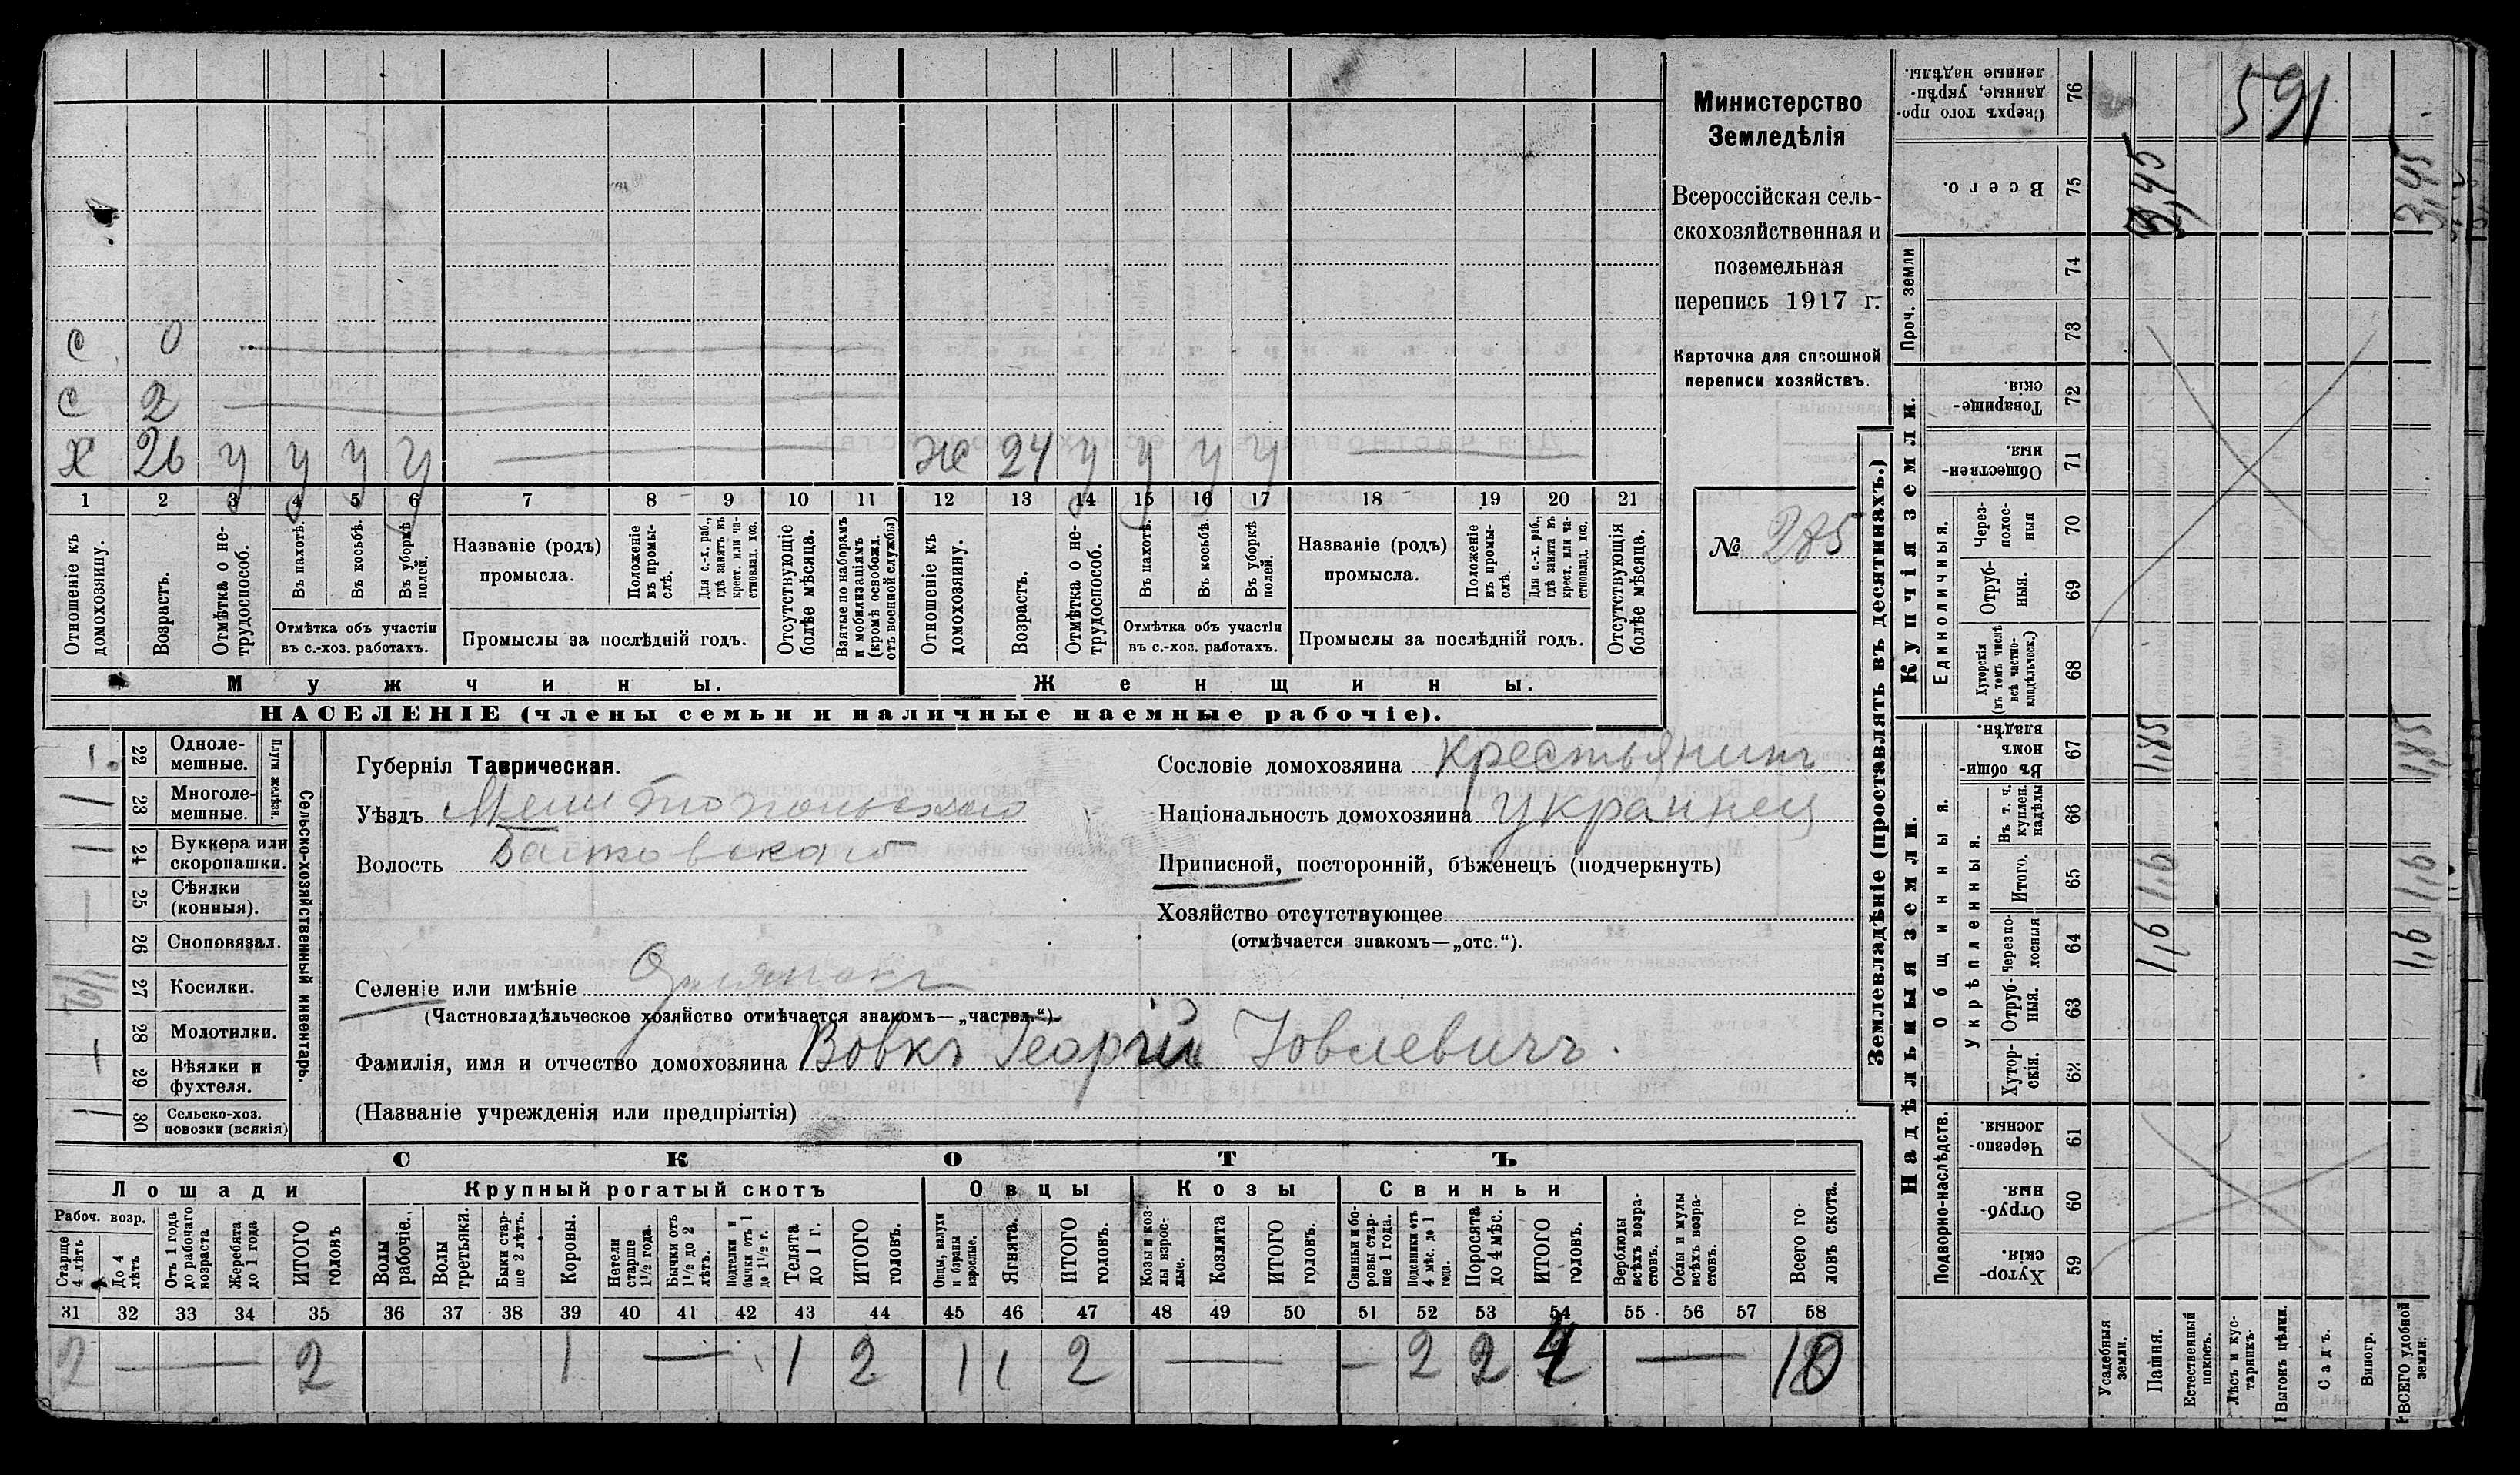 Министерство
Земледѣлія
Всероссійская сель-
скохозяйственная и
поземельная
перепись 1917 г.
Карточка для сплошной
переписи хозяйствъ.
№ 275
с 0
с 2
х 26 у у у у
ж 24 у у у у
1 2 3 4 5 6 7 8 9 10 11 12 13 14 15 16 17 18 19 20 21
Отношеніе къ домохозяину.
Возрастъ.
Отмѣтка о не-трудоспособ.
Въ пахотѣ.
Въ косьбѣ.
Въ уборкѣ полей.
Отмѣтка объ участіи
въ с.-хоз. работахъ.
Названіе (родъ)
промысла.
Положеніе въ промы-слѣ.
Для с.-х. раб., гдѣ занятъ въ крест. или ча-стновлад. хоз.
Промыслы за послѣдній годъ.
Отсутствующіе болѣе мѣсяца.
Взятые по наборамъ и мобилизаціямъ (кромѣ освобожд. отъ военной службы)
Отношеніе къ домохозяину.
Возрастъ.
Отмѣтка о не-трудоспособ.
Въ пахотѣ.
Въ косьбѣ.
Въ уборкѣ полей.
Отмѣтка объ участіи
въ с.-хоз. работахъ.
Названіе (родъ)
промысла.
Положеніе въ промы-слѣ.
Для с.-х. раб., гдѣ занята въ крест. или ча-стновлад. хоз.
Промыслы за послѣдній годъ.
Отсутствующія болѣе мѣсяца.
Мужчины.
Женщины.
НАСЕЛЕНІЕ (члены семьи и наличные наемные рабочіе).
Сельско-хозяйственный инвентарь.
Плуги желѣзн.
22 Одноле-мешные.
23 Многоле-мешные.
24 Буккера или скоропашки.
25 Сѣялки (конныя).
26 Сноповязал.
27 Косилки.
28 Молотилки.
29 Вѣялки и фухтеля.
30 Сельско-хоз. повозки (всякія)
Губернія Таврическая.
Уѣздъ Мелитопольскаго
Волость
Сословіе домохозяина крестьянинъ
Національность домохозяина украинец
Приписной, посторонній, бѣженецъ (подчеркнуть)
Хозяйство отсутствующее
(отмѣчается знакомъ—„отс.“).
Селеніе или имѣніе
(Частновладѣльческое хозяйство отмѣчается знакомъ—„частвл.“)
Фамилія, имя и отчество домохозяина Вовкъ Георгій Іовлевичъ.
(Названіе учрежденія или предпріятія)
СКОТЪ
Лошади
Крупный рогатый скотъ
Овцы
Козы
Свиньи
Рабоч. возр.
Старше 4 лѣтъ
До 4 лѣтъ
Отъ 1 года до рабочаго возраста
Жеребята до 1 года
ИТОГО головъ
Волы рабочіе.
Волы третьяки.
Быки стар-ше 2 лѣтъ.
Коровы.
Нетели старше 1½ года.
Бычки отъ 1½ до 2 лѣтъ.
Подтелки и бычки отъ 1 до 1½ г.
Телята до 1 г.
ИТОГО головъ.
Овцы, валухи и бараны взрослые.
Ягнята.
ИТОГО головъ.
Козы и коз-лы взрос-лые.
Козлята
ИТОГО головъ.
Свиньи и бо-ровы стар-ше 1 года.
Подсвинки отъ 4 мѣс. до 1 года.
Поросята до 4 мѣс.
ИТОГО головъ.
Верблюды всѣхъ возра-стовъ.
Ослы и мулы всѣхъ возра-стовъ.
Всего го-ловъ скота.
31 32 33 34 35 36 37 38 39 40 41 42 43 44 45 46 47 48 49 50 51 52 53 54 55 56 57 58
2 — 2 1 — 1 2 1 1 2 — — 2 2 4 — 10
Землевладѣніе (проставлять въ десятинахъ.)
Надѣльныя земли.
Купчія земли.
Проч. земли
Подворно-наслѣдств.
Общинныя.
Укрѣпленныя.
Единоличныя.
Сверхъ того про-данные, укрѣп-ленные надѣлы. 76
Всего. 75
74
73
Товарище-скія. 72
Обществен-ныя. 71
Через-полос-ныя 70
Отруб-ныя. 69
Хуторскія (въ томъ числѣ всѣ частно-владѣльческ.) 68
Въ общин-номъ владѣн. 67
Въ т. ч. куплен. надѣлы 66
Итого. 65
Черезпо-лосныя 64
Отруб-ныя. 63
Хутор-скія. 62
Черезпо-лосныя. 61
Отруб-ныя. 60
Хутор-скія. 59
Усадебныя земли.
Пашня.
Естественный покосъ.
Лѣсъ и кус-тарникъ.
Выгонъ цѣлин.
Садъ.
Виногр.
ВСЕГО удобной земли.
591
3,45
3,45
1,85
1,85
1,6
1,6
1,6
1,6